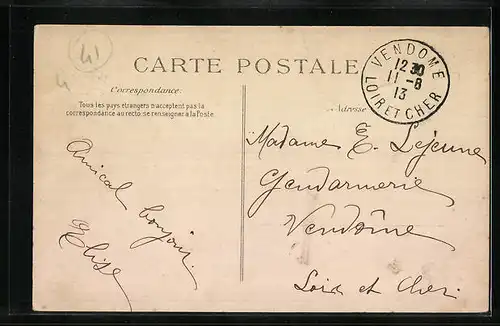 41
4
CARTE POSTALE
Correspondance
Tous les pays étrangers n'acceptent pas la
correspondance au recto: se renseigner à la Poste.
Amical bonjour.
Elise
VENDOME
12 30
11-8
13
LOIR ET CHER
Adresse
Madame E. Lejeune
Gendarmerie
Vendôme
Loir et Cher